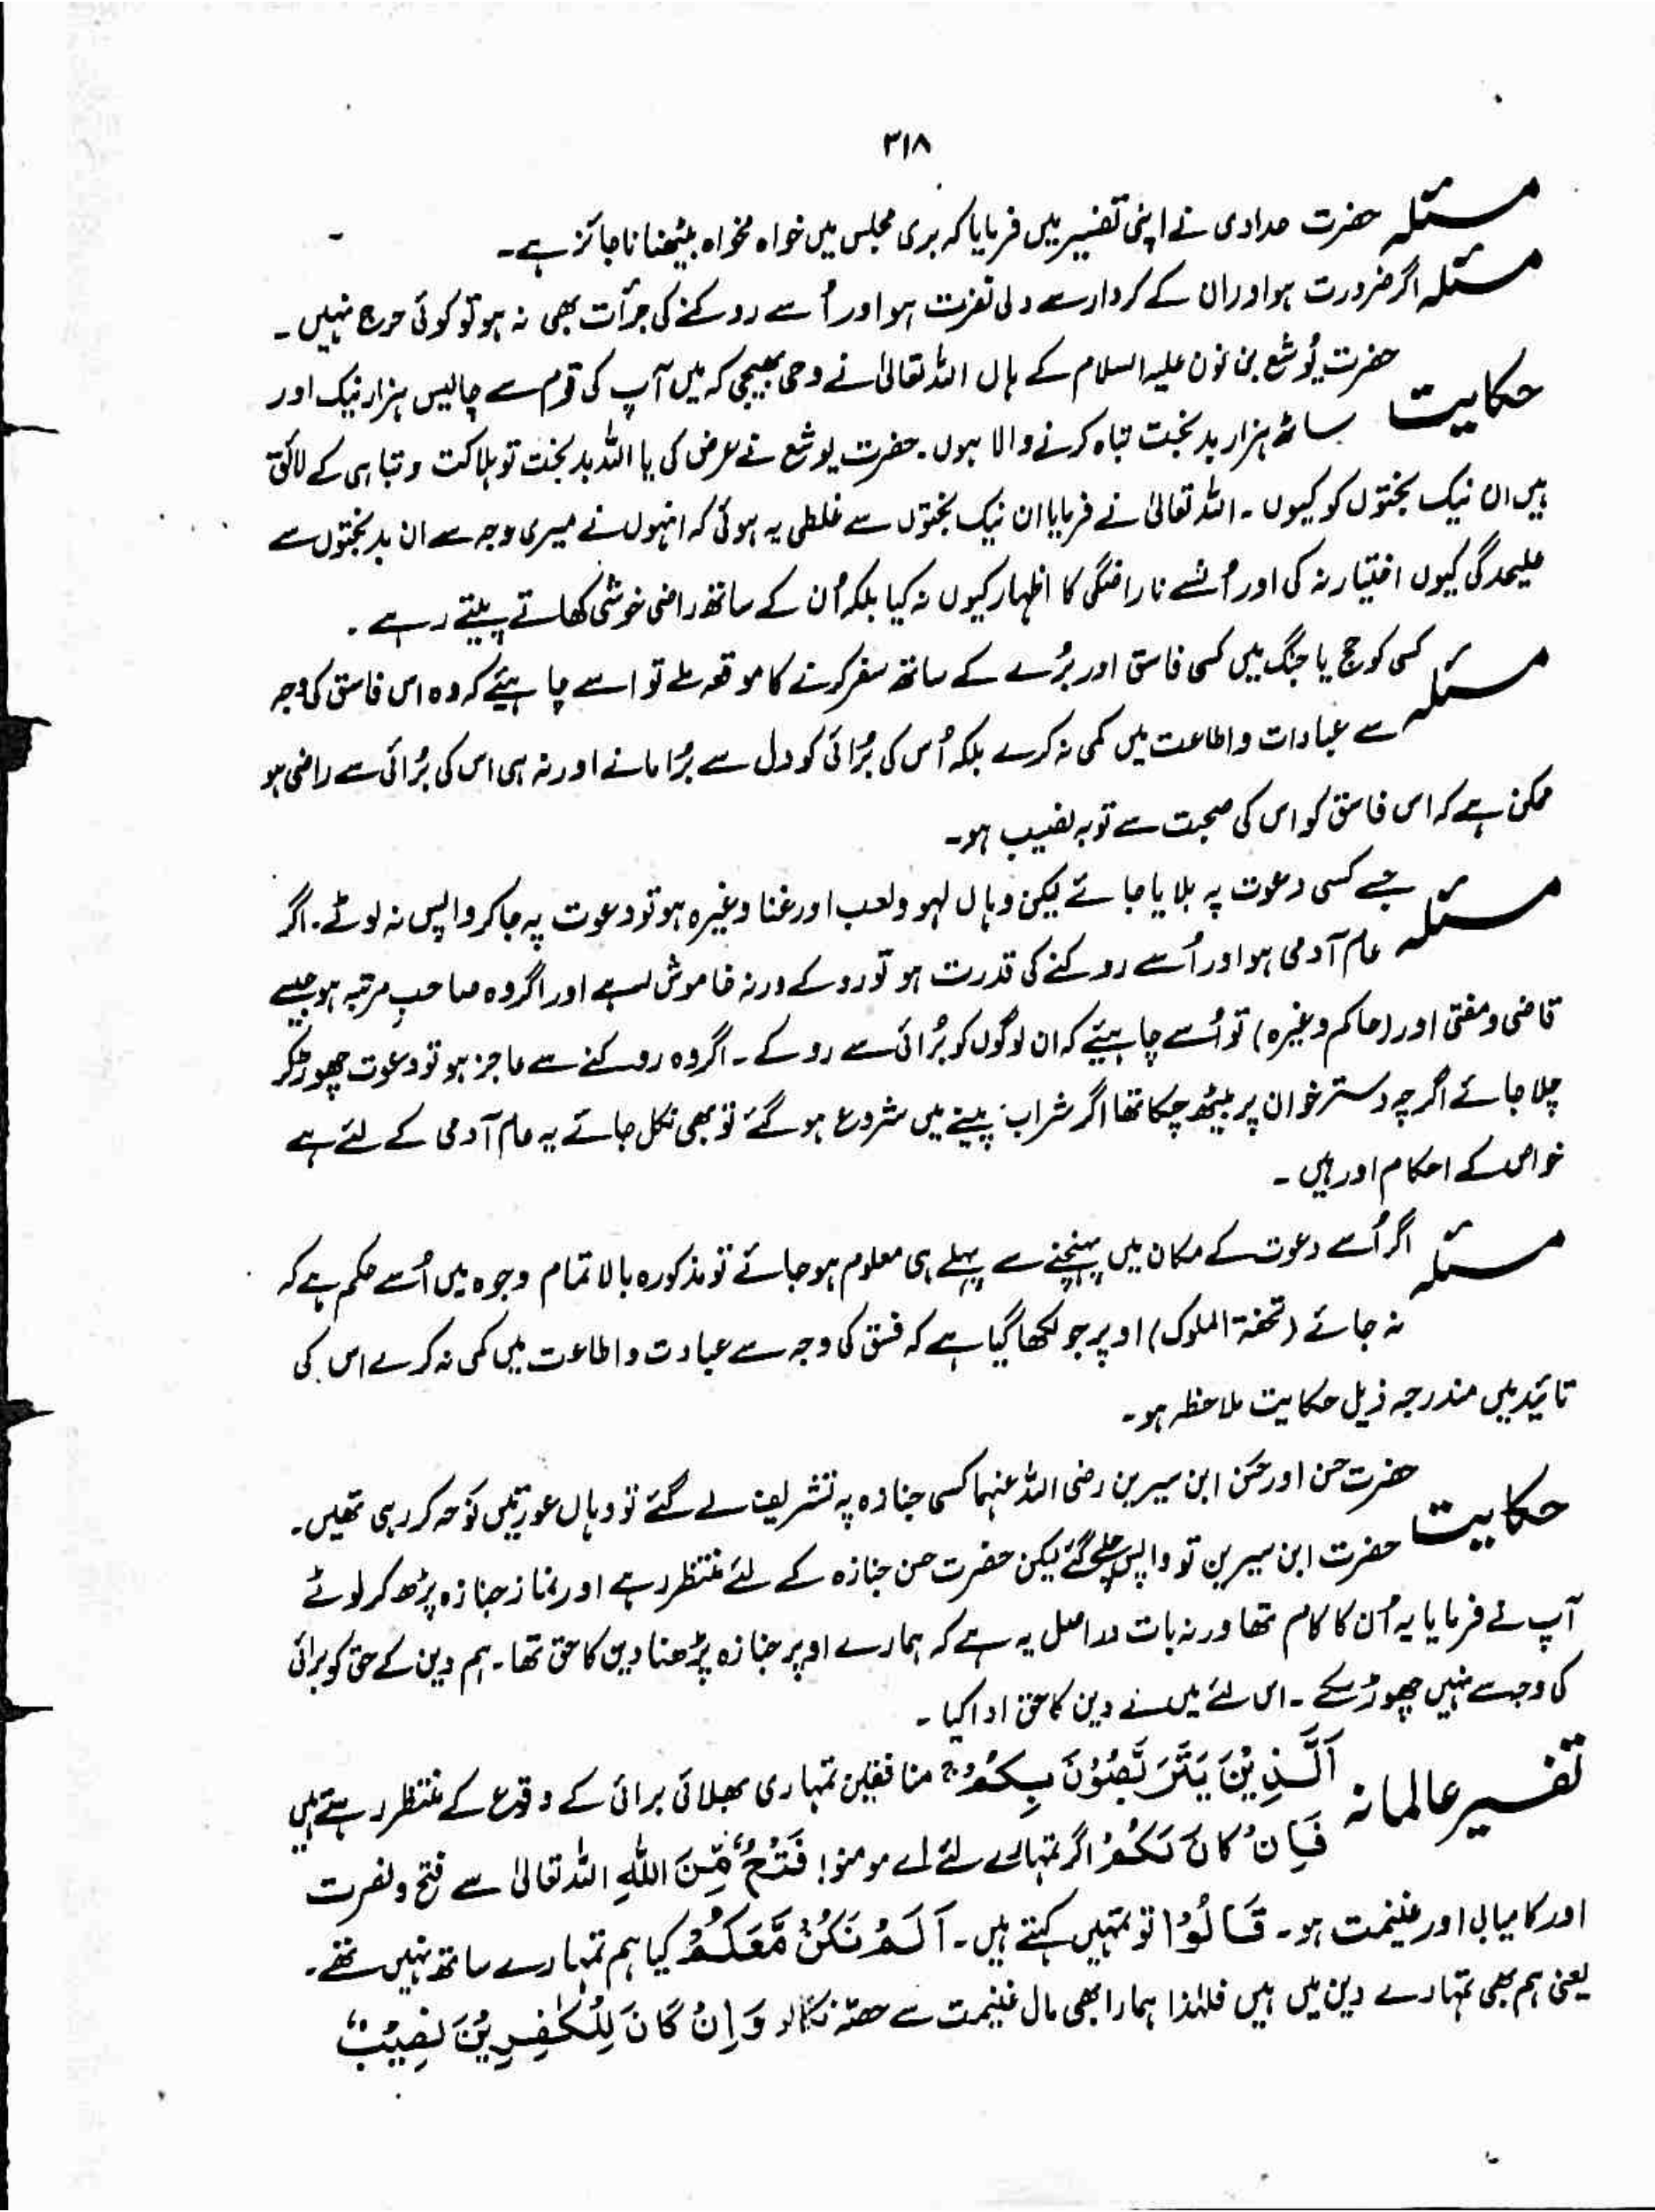 ۳۱۸
مسئلہ حضرت حدادی نے اپنی تفسیر میں فرمایا کہ بری مجلس میں خواہ مخواہ بیٹھنا ناجائز ہے۔
مسئلہ اگر ضرورت ہو اور ان کے کردار سے دلی نفرت ہو اور اُسے روکنے کی جرأت بھی نہ ہو تو کوئی حرج نہیں۔
حکایت حضرت یُوشع بن نون علیہ السلام کے ہاں اللہ تعالیٰ نے وحی بھیجی کہ میں آپ کی قوم سے چالیس ہزار نیک اور
ساٹھ ہزار بدبخت تباہ کرنے والا ہوں۔ حضرت یوشع نے عرض کی یا اللہ بدبخت تو ہلاکت و تباہی کے لائق
ہیں ان نیک بختوں کو کیوں۔ اللہ تعالیٰ نے فرمایا ان نیک بختوں سے غلطی یہ ہوئی کہ انہوں نے میری وجہ سے ان بدبختوں سے
علیحدگی کیوں اختیار نہ کی اور اُن سے ناراضگی کا اظہار کیوں نہ کیا بلکہ اُن کے ساتھ راضی خوشی کھاتے پیتے رہے۔
مسئلہ کسی کو حج یا جنگ میں کسی فاسق اور بُرے کے ساتھ سفر کرنے کا موقعہ ملے تو اسے چاہیئے کہ وہ اس فاسق کی وجہ
سے عبادات و اطاعت میں کمی نہ کرے بلکہ اُس کی بُرائی کو دل سے بُرا مانے اور نہ ہی اس کی بُرائی سے راضی ہو
ممکن ہے کہ اس فاسق کو اس کی صحبت سے توبہ نصیب ہو۔
مسئلہ جسے کسی دعوت پہ بلایا جائے لیکن وہاں لہو و لعب اور غنا وغیرہ ہو تو دعوت پہ جا کر واپس نہ لوٹے۔ اگر
عام آدمی ہو اور اُسے روکنے کی قدرت ہو تو روکے ورنہ خاموش رہے اور اگر وہ صاحبِ مرتبہ ہو جیسے
قاضی و مفتی اور (حاکم وغیرہ) تو اُسے چاہیئے کہ ان لوگوں کو بُرائی سے روکے۔ اگر وہ روکنے سے عاجز ہو تو دعوت چھوڑ کر
چلا جائے اگرچہ دسترخوان پر بیٹھ چکا تھا اگر شراب پینے میں شروع ہو گئے تو بھی نکل جائے یہ عام آدمی کے لئے ہے
خواص کے احکام اور ہیں۔
مسئلہ اگر اُسے دعوت کے مکان میں پہنچنے سے پہلے ہی معلوم ہو جائے تو مذکورہ بالا تمام وجوہ میں اُسے حکم ہے کہ
نہ جائے (تحفۃ الملوک) اوپر جو لکھا گیا ہے کہ فسق کی وجہ سے عبادت و اطاعت میں کمی نہ کرے اس کی
تائید میں مندرجہ ذیل حکایت ملاحظہ ہو۔
حکایت حضرت حسن اور حسن ابن سیرین رضی اللہ عنہما کسی جنازہ پہ تشریف لے گئے تو وہاں عورتیں نوحہ کر رہی تھیں۔
حضرت ابن سیرین تو واپس چلے گئے لیکن حضرت حسن جنازہ کے لئے منتظر رہے اور نماز جنازہ پڑھ کر لوٹے
آپ نے فرمایا یہ اُن کا کام تھا ورنہ بات دراصل یہ ہے کہ ہمارے اوپر جنازہ پڑھنا دین کا حق تھا۔ ہم دین کے حق کو برائی
کی وجہ سے نہیں چھوڑ سکے۔ اس لئے میں نے دین کا حق ادا کیا۔
تفسیر عالمانہ اَلَّذِیْنَ یَتَرَبَّصُوْنَ بِکُمْ ج منافقین تمہاری بھلائی برائی کے وقوع کے منتظر رہتے ہیں
فَاِنْ کَانَ لَکُمْ اگر تمہارے لئے اے مومنو! فَتْحٌ مِّنَ اللّٰہِ اللہ تعالیٰ سے فتح و نصرت
اور کامیابی اور غنیمت ہو۔ قَالُوْا تو تمہیں کہتے ہیں۔ اَلَمْ نَکُنْ مَّعَکُمْ کیا ہم تمہارے ساتھ نہیں تھے۔
یعنی ہم بھی تمہارے دین میں ہیں فلہٰذا ہمارا بھی مال غنیمت سے حصّہ نکالو وَاِنْ کَانَ لِلْکٰفِرِیْنَ نَصِیْبٌ